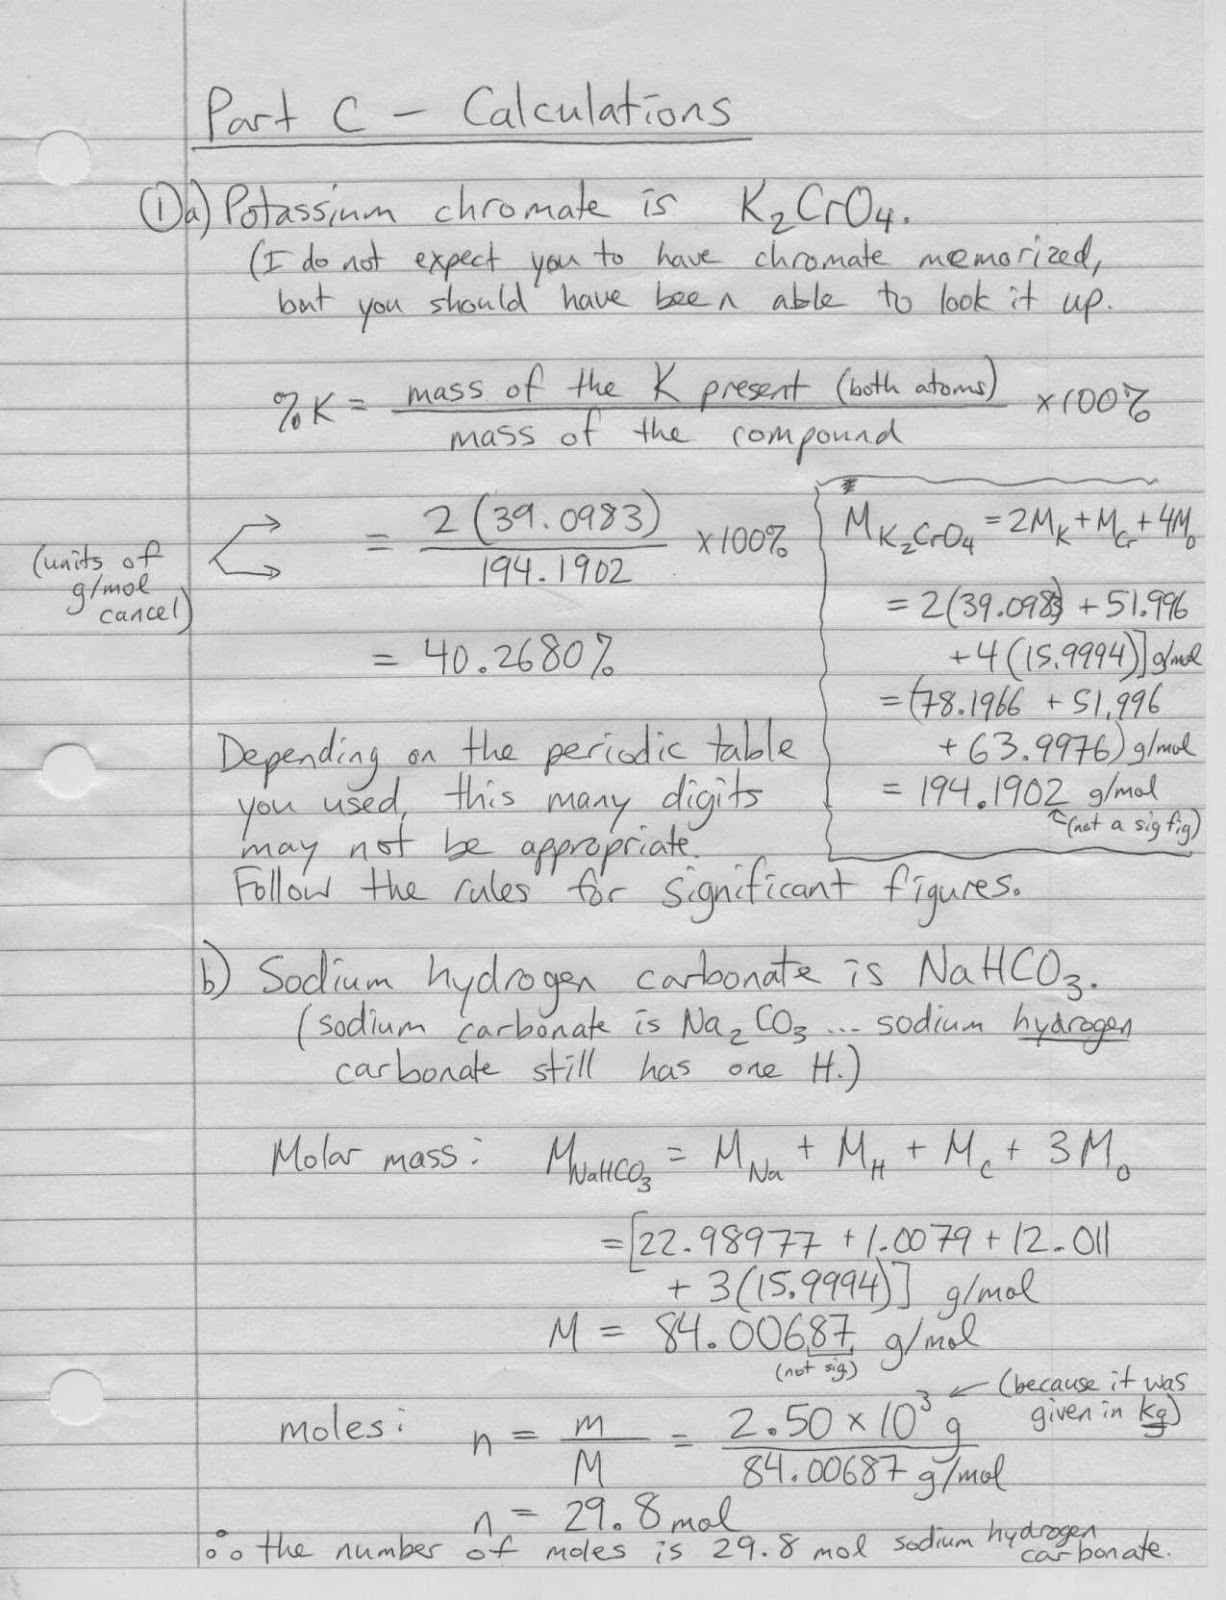 Part C - Calculations
① a) Potassium chromate is K₂CrO₄.
(I do not expect you to have chromate memorized,
but you should have been able to look it up.
%K = mass of the K present (both atoms) / mass of the compound × 100%
= 2(39.0983) / 194.1902 × 100%
(units of
g/mol
cancel)
= 40.2680%
M K₂CrO₄ = 2M_K + M_Cr + 4M_O
= 2(39.0983) + 51.996
+ 4(15.9994)] g/mol
= (78.1966 + 51.996
+ 63.9976) g/mol
= 194.1902 g/mol
(not a sig fig)
Depending on the periodic table
you used, this many digits
may not be appropriate.
Follow the rules for significant figures.
b) Sodium hydrogen carbonate is NaHCO₃.
(sodium carbonate is Na₂CO₃ ... sodium hydrogen
carbonate still has one H.)
Molar mass: M NaHCO₃ = M_Na + M_H + M_C + 3M_O
= [22.98977 + 1.0079 + 12.011
+ 3(15.9994)] g/mol
M = 84.00687 g/mol
(not sig)
(because it was
given in kg)
moles: n = m / M = 2.50 × 10³ g / 84.00687 g/mol
n = 29.8 mol
∴ the number of moles is 29.8 mol sodium hydrogen
carbonate.